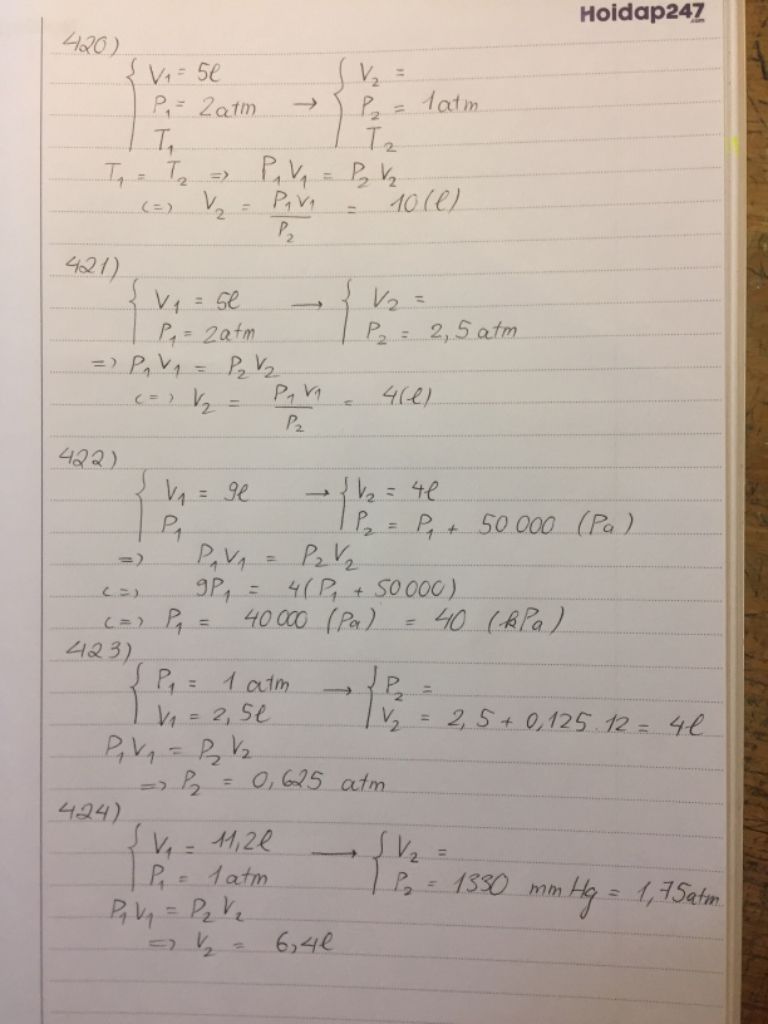 Hoidap247.com
420)
{ V₁ = 5l → { V₂ =
P₁ = 2atm P₂ = 1atm
T₁ T₂
T₁ = T₂ => P₁V₁ = P₂V₂
<=> V₂ = P₁V₁/P₂ = 10(l)
421)
{ V₁ = 5l → { V₂ =
P₁ = 2atm P₂ = 2,5atm
=> P₁V₁ = P₂V₂
<=> V₂ = P₁V₁/P₂ = 4(l)
422)
{ V₁ = 9l → { V₂ = 4l
P₁ P₂ = P₁ + 50000 (Pa)
=> P₁V₁ = P₂V₂
<=> 9P₁ = 4(P₁ + 50000)
<=> P₁ = 40000 (Pa) = 40 (kPa)
423)
{ P₁ = 1 atm → { P₂ =
V₁ = 2,5l V₂ = 2,5 + 0,125.12 = 4l
P₁V₁ = P₂V₂
=> P₂ = 0,625 atm
424)
{ V₁ = 11,2l → { V₂ =
P₁ = 1atm P₂ = 1330 mmHg = 1,75atm
P₁V₁ = P₂V₂
=> V₂ = 6,4l